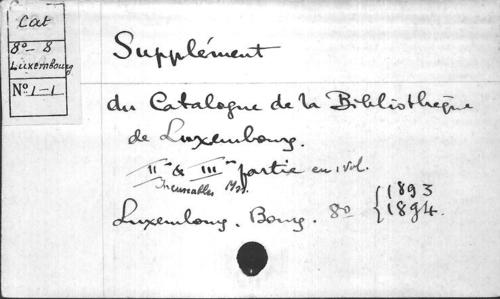 Cat
8º - 8
Luxembourg
Nº 1-1
Supplément
du Catalogue de la Bibliothèque
de Luxembourg.
IIe & IIIe partie en 1 vol.
Incunables Mss.
Luxembourg. Bourg. 8º { 1893
1894.